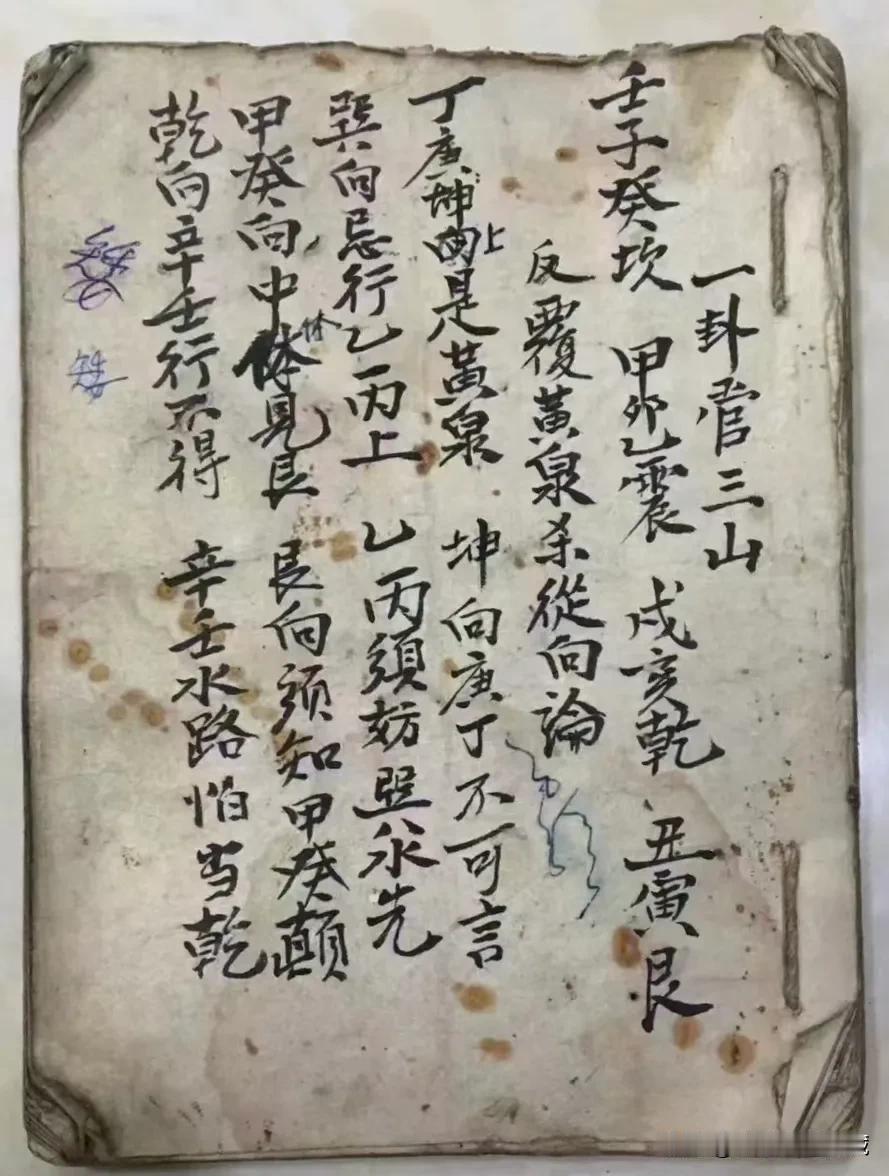 一卦管三山
壬子癸坎 甲卯乙震 戌亥乾 丑寅艮
反覆黃泉杀從向論
丁庚坤上是黃泉 坤向庚丁不可言
巽向忌行乙丙上 乙丙須妨巽水先
甲癸向中休見艮 艮向須知甲癸顛
乾向辛壬行不得 辛壬水路怕当乾